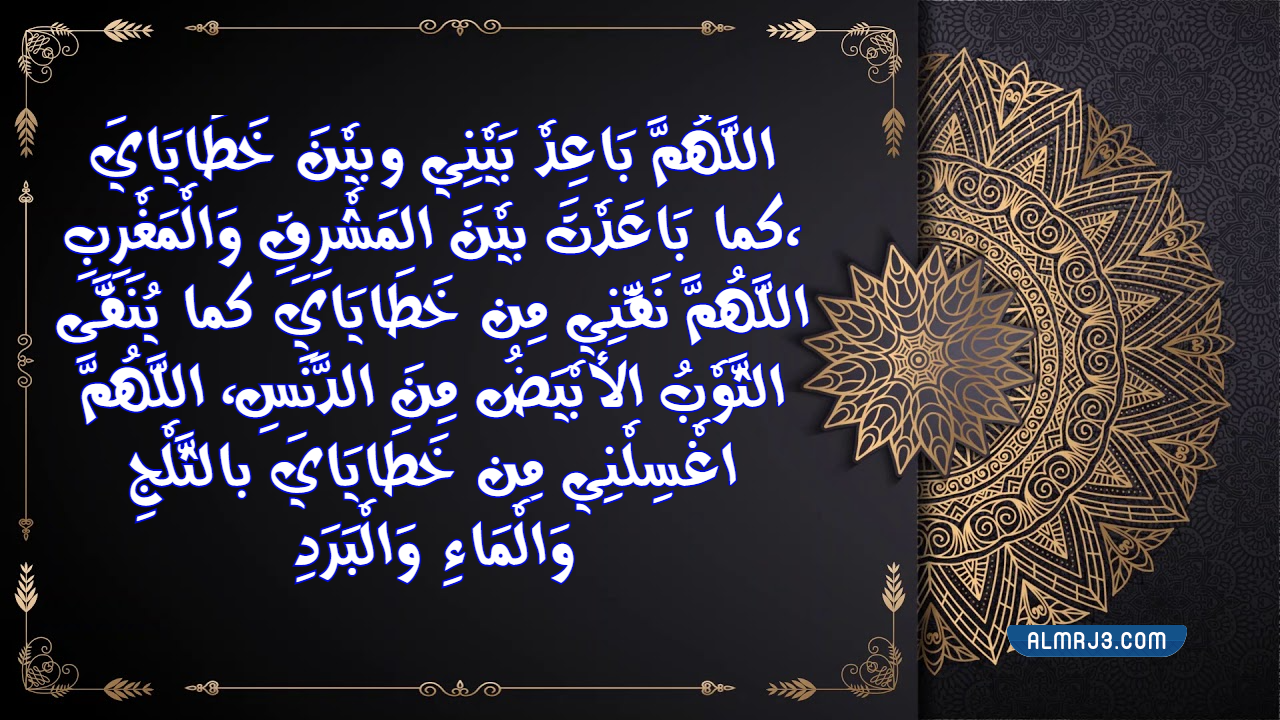 اللَّهُمَّ بَاعِدْ بَيْنِي وبيْنَ خَطَايَايَ
،كما بَاعَدْتَ بيْنَ المَشْرِقِ وَالْمَغْرِبِ
اللَّهُمَّ نَقِّنِي مِن خَطَايَايَ كما يُنَقَّى
الثَّوْبُ الأبْيَضُ مِنَ الدَّنَسِ، اللَّهُمَّ
اغْسِلْنِي مِن خَطَايَايَ بالثَّلْجِ
وَالْمَاءِ وَالْبَرَدِ
ALMRJ3.COM